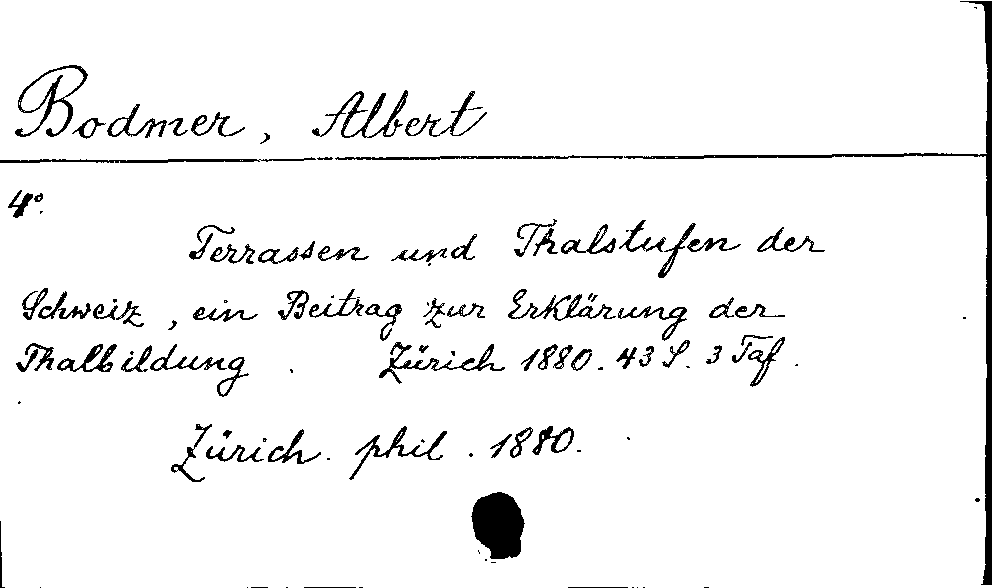 Bodmer, Albert
4°.
Terrassen und Thalstufen der
Schweiz, ein Beitrag zur Erklärung der
Thalbildung. Zürich 1880. 43 S. 3 Taf.
Zürich. phil. 1880.